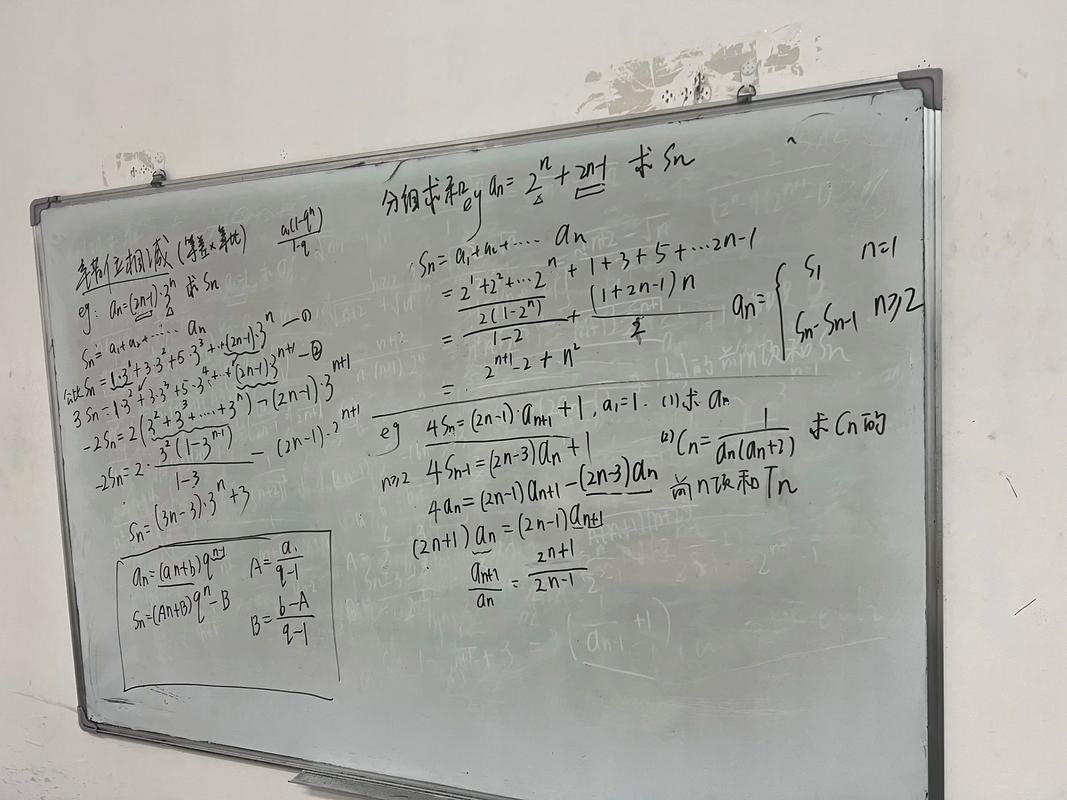 错位相减(等差×等比) a₁(1-qⁿ)/1-q
eg: aₙ=(2n-1)·3ⁿ 求Sₙ
Sₙ=a₁+a₂+······aₙ
公比Sₙ=1·3¹+3·3²+5·3³+···(2n-1)·3ⁿ—①
3Sₙ=1·3²+3·3³+5·3⁴+··+(2n-1)3ⁿ⁺¹—②
-2Sₙ=2(3²+3³+······+3ⁿ)-(2n-1)·3ⁿ⁺¹
-2Sₙ=2·3²(1-3ⁿ⁻¹)/1-3-(2n-1)·2ⁿ⁺¹
Sₙ=(3n-3)·3ⁿ+3
aₙ=(an+b)qⁿ⁻¹ A=a/q-1
Sₙ=(An+B)qⁿ-B B=b-A/q-1
分组求和 eg aₙ=2ⁿ+2n-1 求Sₙ
Sₙ=a₁+a₂+······aₙ
=2¹+2²+···2ⁿ+1+3+5+···2n-1
=2(1-2ⁿ)/1-2+(1+2n-1)n/2
=2ⁿ⁺¹-2+n²
aₙ={S₁ n=1
Sₙ-Sₙ₋₁ n≥2
eg 4Sₙ=(2n-1)·aₙ₊₁+1,a₁=1. (1)求aₙ
n≥2 4Sₙ₋₁=(2n-3)aₙ+1
(2)Cₙ=1/aₙ(aₙ+2) 求Cₙ的
前n项和Tₙ
4aₙ=(2n-1)aₙ₊₁-(2n-3)aₙ
(2n+1)aₙ=(2n-1)aₙ₊₁
aₙ₊₁/aₙ=2n+1/2n-1